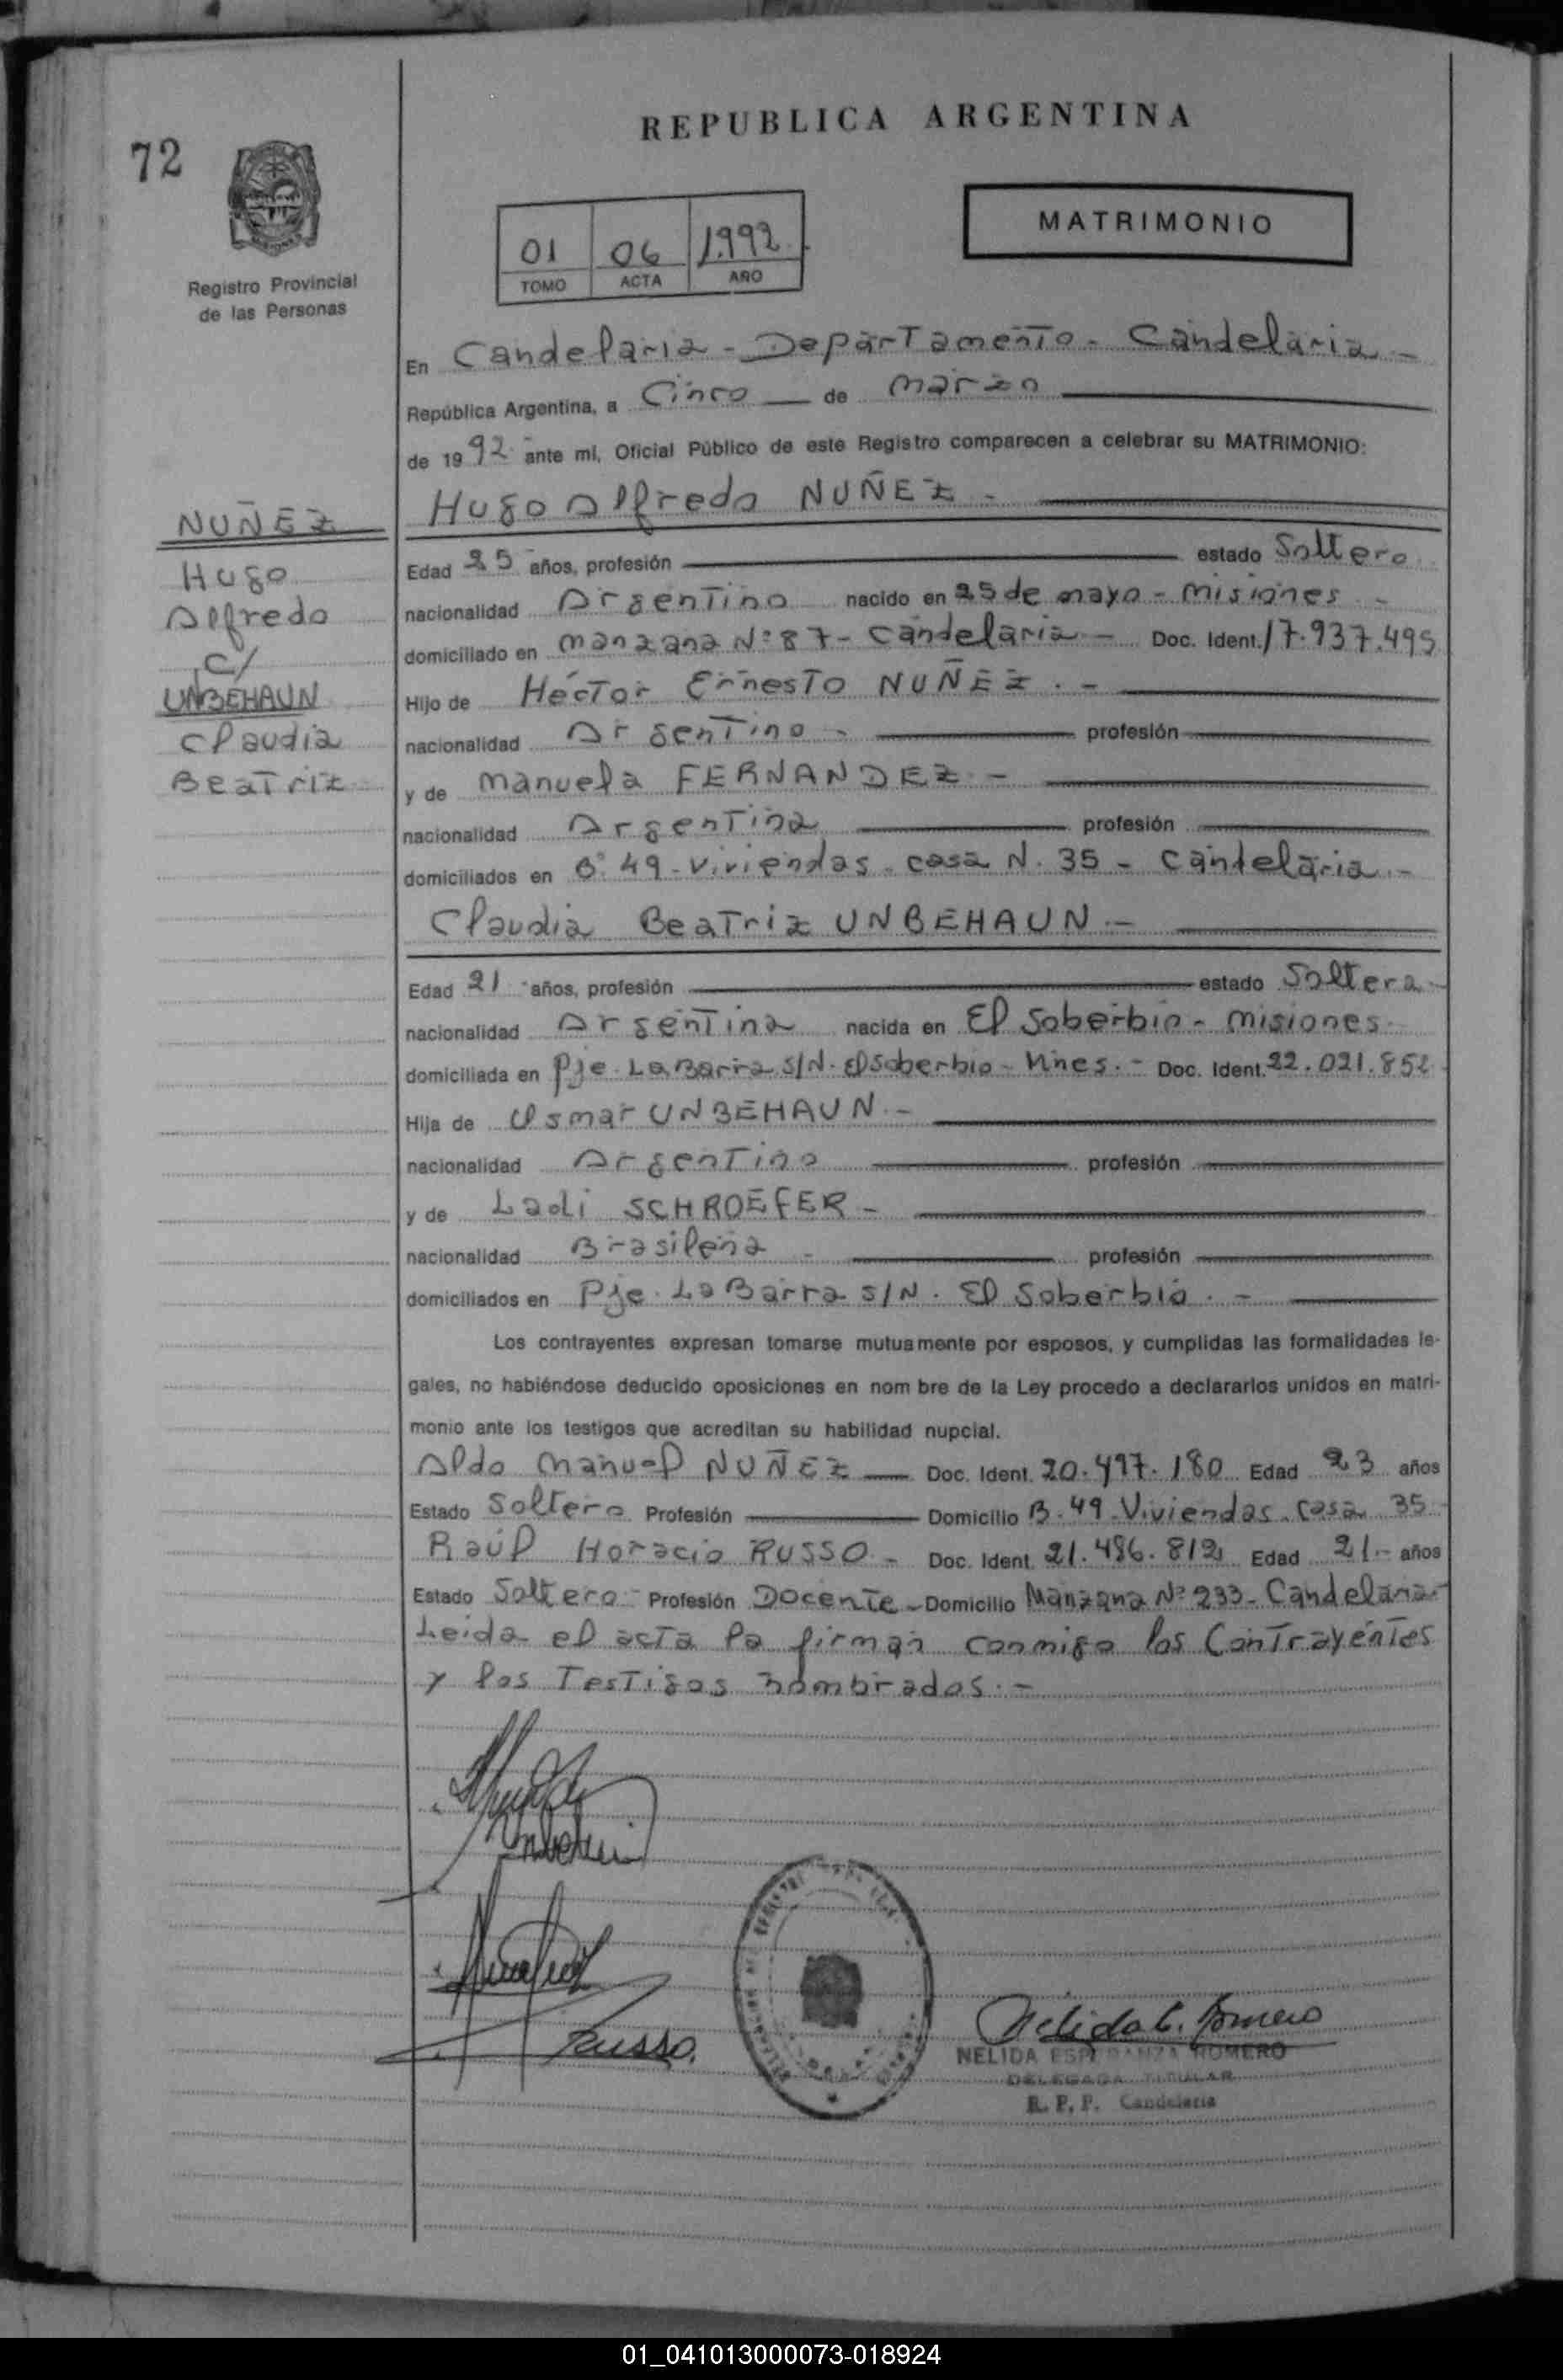 72
Registro Provincial
de las Personas
REPUBLICA ARGENTINA
01 06 1.992
TOMO ACTA AÑO
MATRIMONIO
En Candelaria - Departamento - Candelaria -
República Argentina, a Cinco de marzo
de 1992 ante mi, Oficial Público de este Registro comparecen a celebrar su MATRIMONIO:
Hugo Alfredo NUÑEZ -
Edad 25 años, profesión estado Soltero
nacionalidad Argentino nacido en 25 de mayo - misiones -
domiciliado en manzana Nº 87 - Candelaria - Doc. Ident. 17.937.495
Hijo de Héctor Ernesto NUÑEZ . -
nacionalidad Argentino - profesión
y de manuela FERNANDEZ - -
nacionalidad Argentina profesión
domiciliados en Bº 49 - Viviendas - casa N. 35 - Candelaria -
NUÑEZ
Hugo
Alfredo
C/
UNBEHAUN
Claudia
Beatriz
Claudia Beatriz UNBEHAUN . -
Edad 21 años, profesión estado Soltera
nacionalidad Argentina nacida en El Soberbio - misiones
domiciliada en Pje. La Barra S/N. El Soberbio - Mnes. - Doc. Ident. 22.021.852
Hija de Osmar UNBEHAUN . -
nacionalidad Argentino profesión
y de Ladi SCHROEFER -
nacionalidad Brasileña - profesión
domiciliados en Pje. La Barra S/N. El Soberbio . -
Los contrayentes expresan tomarse mutuamente por esposos, y cumplidas las formalidades le-
gales, no habiéndose deducido oposiciones en nom bre de la Ley procedo a declararlos unidos en matri-
monio ante los testigos que acreditan su habilidad nupcial.
Aldo Manuel NUÑEZ Doc. Ident. 20.497.180 Edad 23 años
Estado Soltero Profesión Domicilio B. 49 - Viviendas - casa 35
Raúl Horacio RUSSO - Doc. Ident. 21.486.812 Edad 21.- años
Estado Soltero - Profesión Docente - Domicilio Manzana Nº 233 - Candelaria -
Leida el acta la firman conmigo los Contrayentes
y los Testigos nombrados . -
Russo.
Nelida E. Romero
NELIDA ESPERANZA ROMERO
DELEGADA TITULAR
R. P. P. Candelaria
01_041013000073-018924